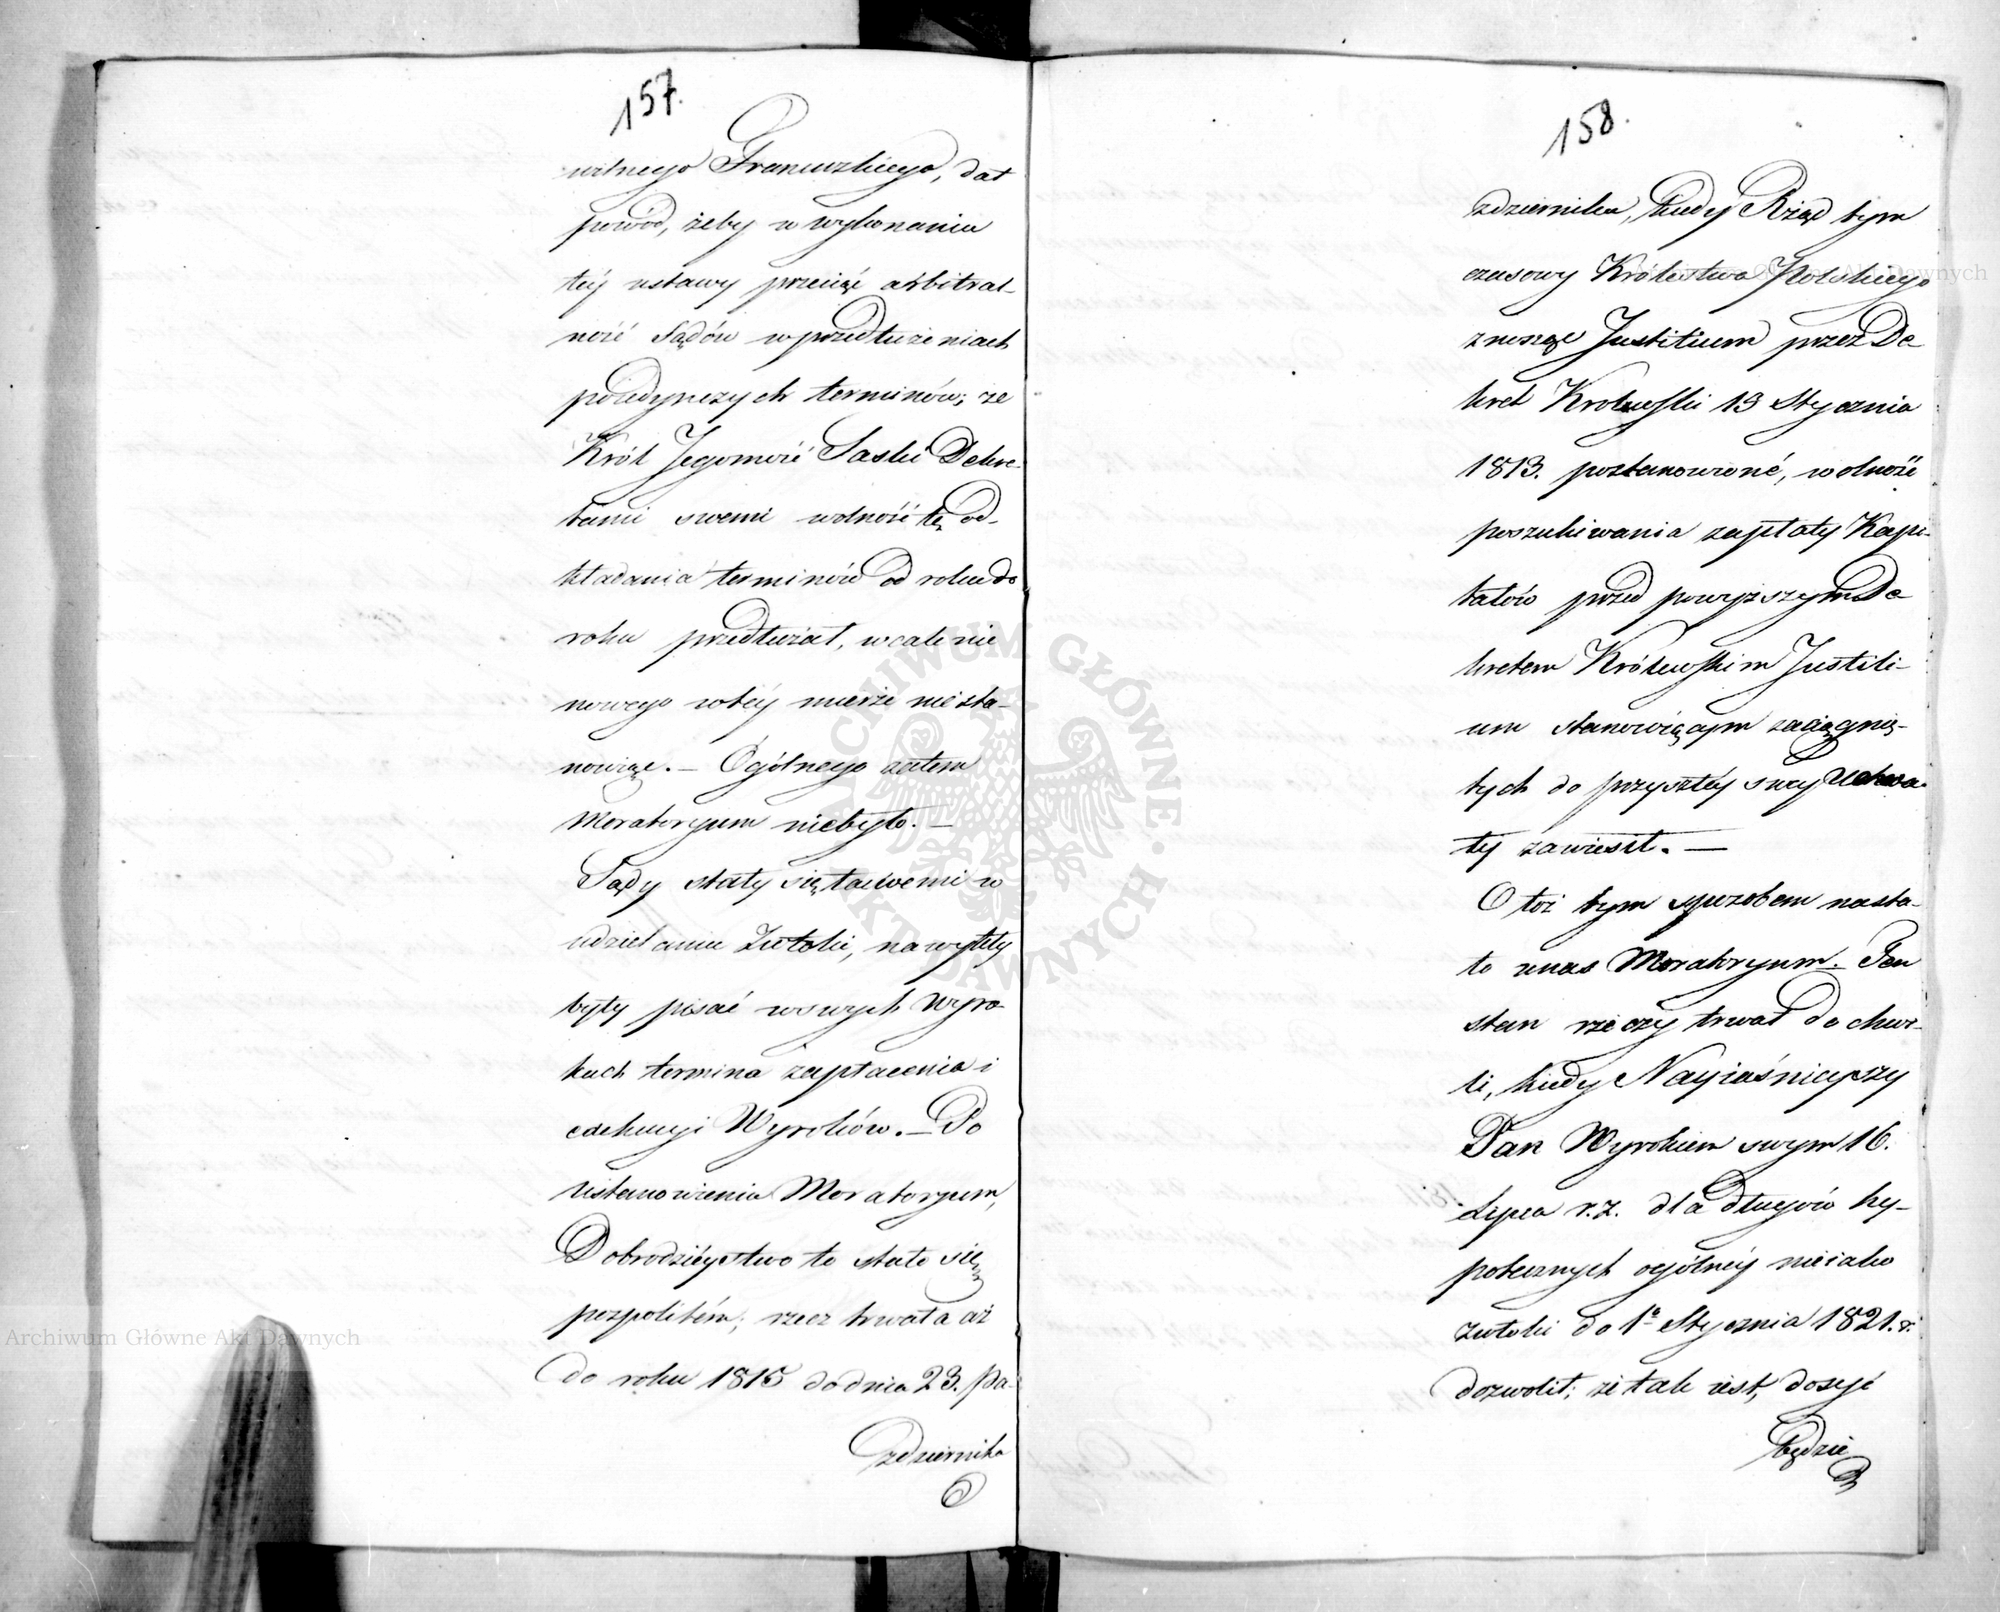 157.
wilnego Francuzkiego, dał
powód, żeby w wykonaniu
téy ustawy przeciąć arbitral-
ność Sądów w przedłużeniach
poiedynczych terminów; że
Król Jegomość Saski Dekre-
tami swemi wolność tę od-
kładania terminów od roku do
roku przedłużał, wcale nic
nowego w téy mierze nie sta-
nowiąc. — Ogólnego zatem
Moratoryum niebyło. —
Sądy stały się łatwemi w
udzielaniu Zwłoki, nawykły
były pisać w swych Wyro-
kach termina zapłacenia i
exekucyi Wyroków. — Po
ustanowieniu Moratoryum,
Dobrodzieystwo to stało się
pospolitém; rzecz trwała aż
do roku 1815 do dnia 23. Pa-
zdziernika
158.
zdziernika, kiedy Rząd tym
czasowy Królestwa Polskiego
znosząc Justitium przez De
kret Krolewski 13 Stycznia
1813. postanowioné, wolność
poszukiwania zapłaty Kapi-
tałów przed powyższym De
kretem Królewskim Justiti-
um stanowiącym zaciągnię-
tych do przyszłéy swéy Uchwa-
ły zawiesił. —
Otóż tym sposobem nasta-
ło u nas Moratoryum. Ten
stan rzeczy trwał do chwi-
li, kiedy Nayiaśnieyszy
Pan Wyrokiem swym 16.
Lipca r. z. dla długów hy-
potecznych ogólnéy nieiako
Zwłoki do 1º Stycznia 1821. r.
dozwolił; że tak iest, dosyć
będzie
Archiwum Główne Akt Dawnych
ARCHIWUM GŁÓWNE AKT DAWNYCH
Archiwum Główne Akt Dawnych